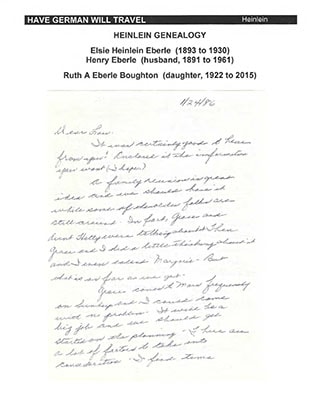 HAVE GERMAN WILL TRAVEL
Heinlein
HEINLEIN GENEALOGY
Elsie Heinlein Eberle (1893 to 1930)
Henry Eberle (husband, 1891 to 1961)
Ruth A Eberle Boughton (daughter, 1922 to 2015)
1/24/86
Dear
It was certainly good to hear
from you! Enclosed is the information
you want (I hope)
A family reunion is great
idea and we should have it
while some of the older folks are
still around. In fact, Grace and
Aunt Hetty were talking about it. Then
Grace and I did a little thinking about it
and I even asked Marjorie - But
that is as far as we got.
June could more frequently
on Sunday and I could come
with no problem. It will be a
big job and we should get
started on the planning. I have
a lot of factors to take into
consideration. I find time